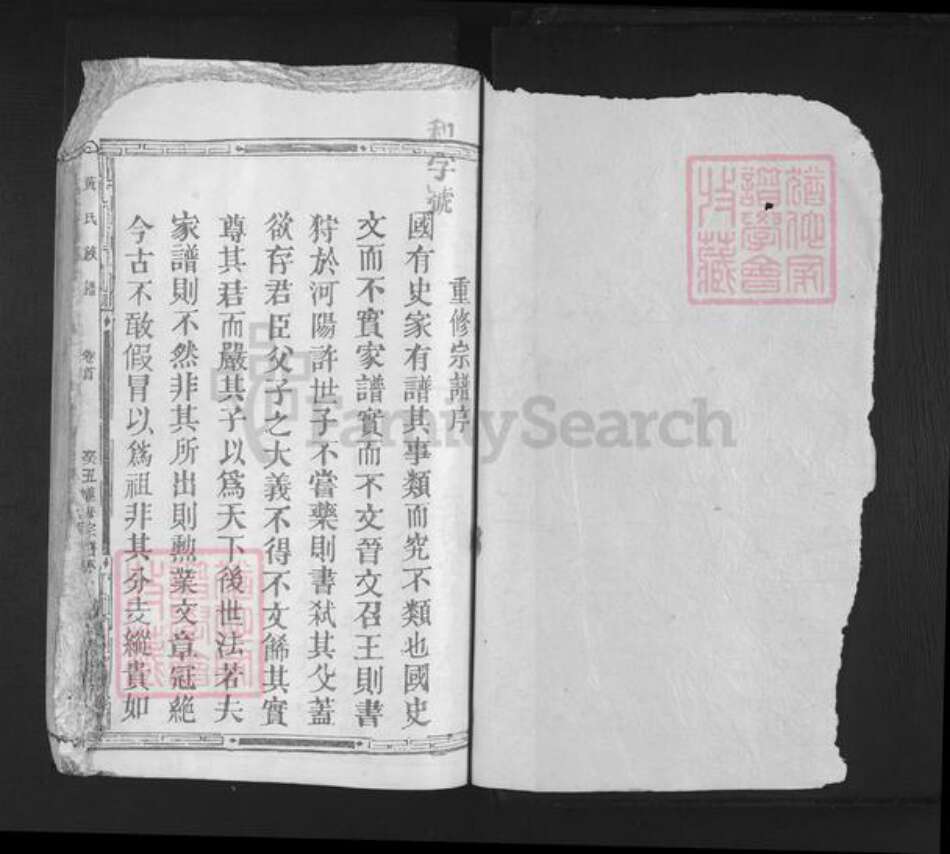 和字號
重修宗譜序
國有史家有譜其事類而究不類也國史
文而不實家譜實而不文晉文召王則書
狩於河陽許世子不嘗藥則書弑其父蓋
欲存君臣父子之大義不得不文飾其實
尊其君而嚴其子以爲天下後世法若夫
家譜則不然非其所出則勲業文章冠絶
今古不敢假冒以爲祖非其分支縱貴如
黃氏族譜
卷首
癸丑
猶他家
譜學會
收藏
FamilySearch